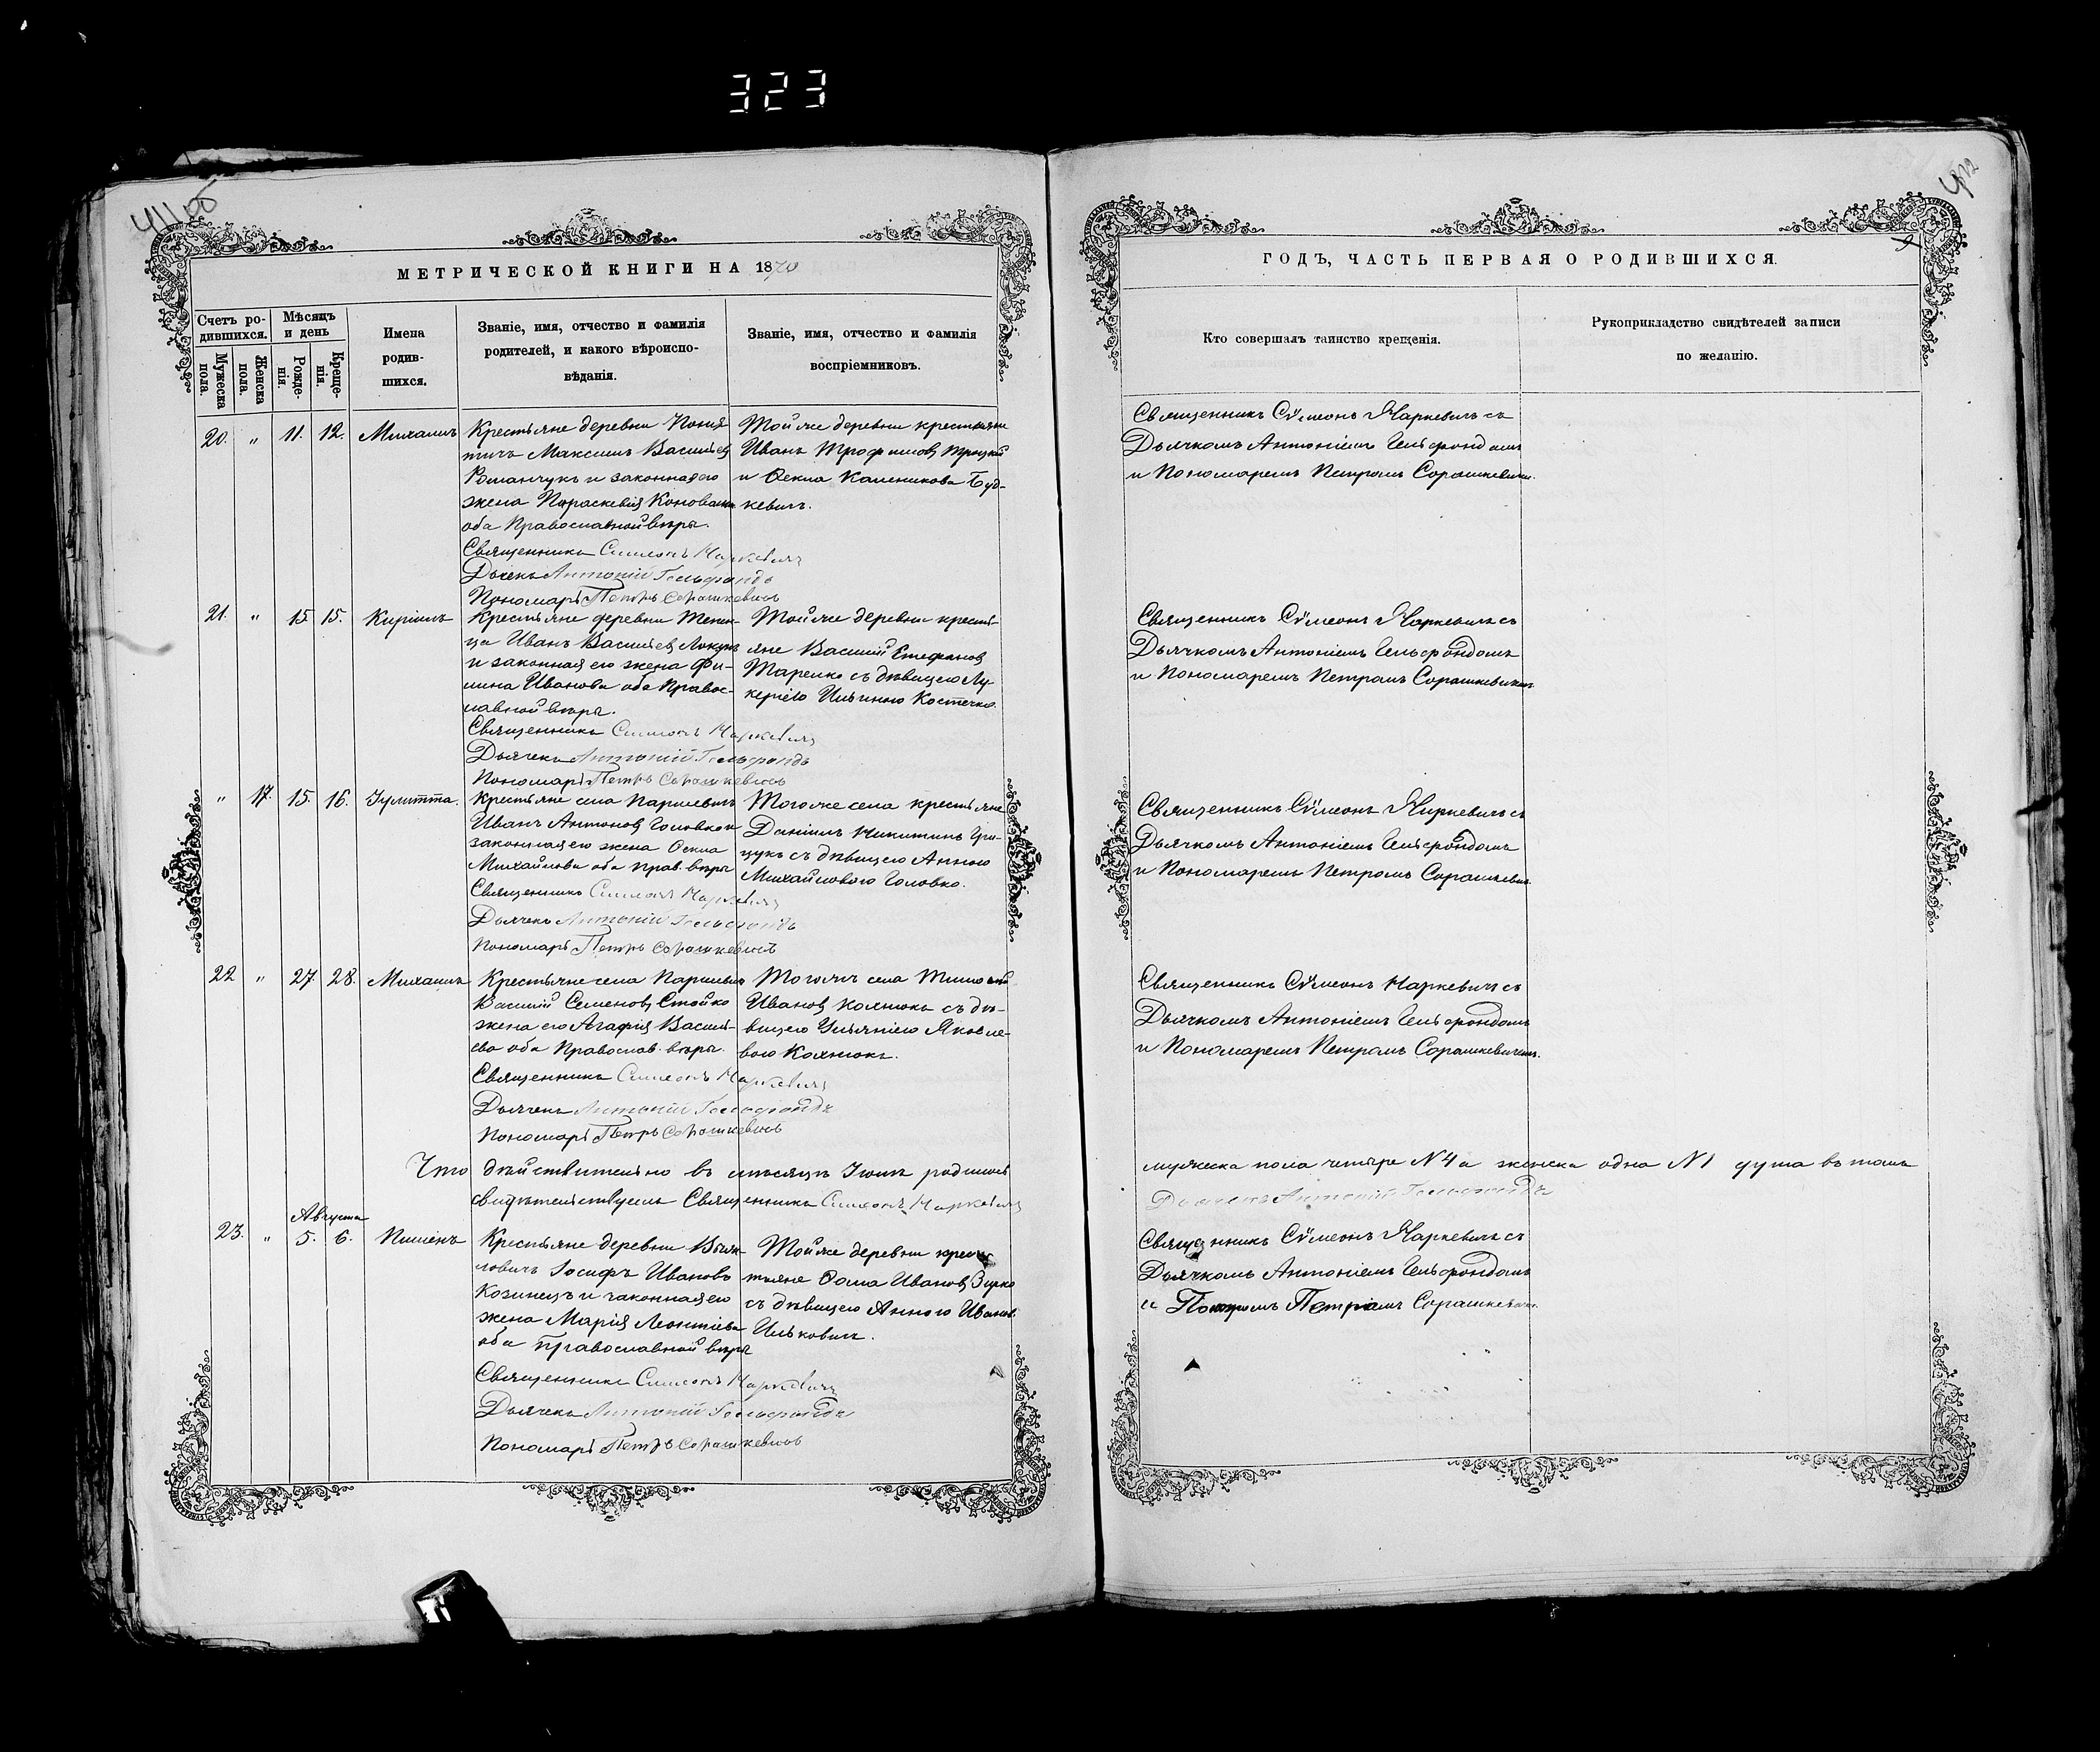 323
411 об
412
МЕТРИЧЕСКОЙ КНИГИ НА 1870
Счетъ ро-
дившихся.
Мужеска
пола.
Женска
пола.
Мѣсяцъ
и день
Рожде-
нія.
Креще-
нія.
Имена
родив-
шихся.
Званіе, имя, отчество и фамилія
родителей, и какого вѣроиспо-
вѣданія.
Званіе, имя, отчество и фамилія
воспріемниковъ.
20. „ 11. 12. Михаилъ
Крестьяне деревни
Максимъ Васильевъ
Романчукъ и законная его
жена Параскевія
оба Православной вѣры.
Священникъ Симеонъ Маркевичъ
Дьячекъ Антоній Гельфондъ
Пономарь Петръ Сорашкевичъ
Той же деревни крестьяне
Иванъ Трофимовъ
и Ѳекла Буд-
кевичъ.
21. „ 15 15. Кириллъ
Крестьяне деревни
ца Иванъ Васильевъ
и законная его жена Фи-
Иванова оба Правос-
лавной вѣры.
Священникъ Симеонъ Маркевичъ
Дьячекъ Антоній Гельфондъ
Пономарь Петръ Сорашкевичъ
Той же деревни кресть-
яне Василій Стефановъ
съ дѣвицею Лу-
керіею Ильиною Костечко.
„ 17. 15. 16. Іулитта.
Крестьяне села Паршевичъ
Иванъ Антоновъ Головко и
законная его жена Ѳекла
Михайлова оба прав. вѣры
Священникъ Симеонъ Маркевичъ
Дьячекъ Антоній Гельфондъ
Пономарь Петръ Сорашкевичъ
Того же села крестьяне
Даніилъ Никитинъ Гри-
цукъ съ дѣвицею Анною
Михайловою Головко.
22 „ 27. 28. Михаилъ
Крестьяне села Паршевичъ
Василій Семеновъ Стойко
жена его Агафія Василь-
ева оба Православ. вѣры.
Священникъ Симеонъ Маркевичъ
Дьячекъ Антоній Гельфондъ
Пономарь Петръ Сорашкевичъ
Того же села Тимоѳей
Ивановъ съ дѣ-
вицею Ульяніею Яковле-
вою
Что дѣйствительно въ мѣсяцѣ Іюлѣ родилось
свидѣтельствуемъ Священникъ Симеонъ Маркевичъ
Августа
23. „ 5. 6. Пименъ
Крестьяне деревни
ловичъ Іосифъ Ивановъ
Козинецъ и законная его
жена Марія Леонтіева
оба православной вѣры
Священникъ Симеонъ Маркевичъ
Дьячекъ Антоній Гельфондъ
Пономарь Петръ Сорашкевичъ
Той же деревни крес
тьяне Ѳома Ивановъ
съ дѣвицею Анною Иванов.
Илькович.
ГОДЪ, ЧАСТЬ ПЕРВАЯ О РОДИВШИХСЯ.
Кто совершалъ таинство крещенія.
Рукоприкладство свидѣтелей записи
по желанію.
Священникъ Сѵмеонъ Маркевичъ съ
Дьячкомъ Антоніемъ Гельфондомъ
и Пономаремъ Петромъ Сорашкевичемъ.
Священникъ Сѵмеонъ Маркевичъ съ
Дьячкомъ Антоніемъ Гельфондомъ
и Пономаремъ Петромъ Сорашкевичемъ
Священникъ Сѵмеонъ Маркевичъ съ
Дьячкомъ Антоніемъ Гельфондомъ
и Пономаремъ Петромъ Сорашкевич.
Священникъ Сѵмеонъ Маркевичъ съ
Дьячкомъ Антоніемъ Гельфондомъ
и Пономаремъ Петромъ Сорашкевичемъ.
мужеска пола четыре №4 а женска одна №1 душа въ томъ
Дьячекъ Антоній Гельфондъ
Священникъ Сѵмеонъ Маркевичъ съ
Дьячкомъ Антоніемъ Гельфондомъ
и Петромъ Сорашкевич.